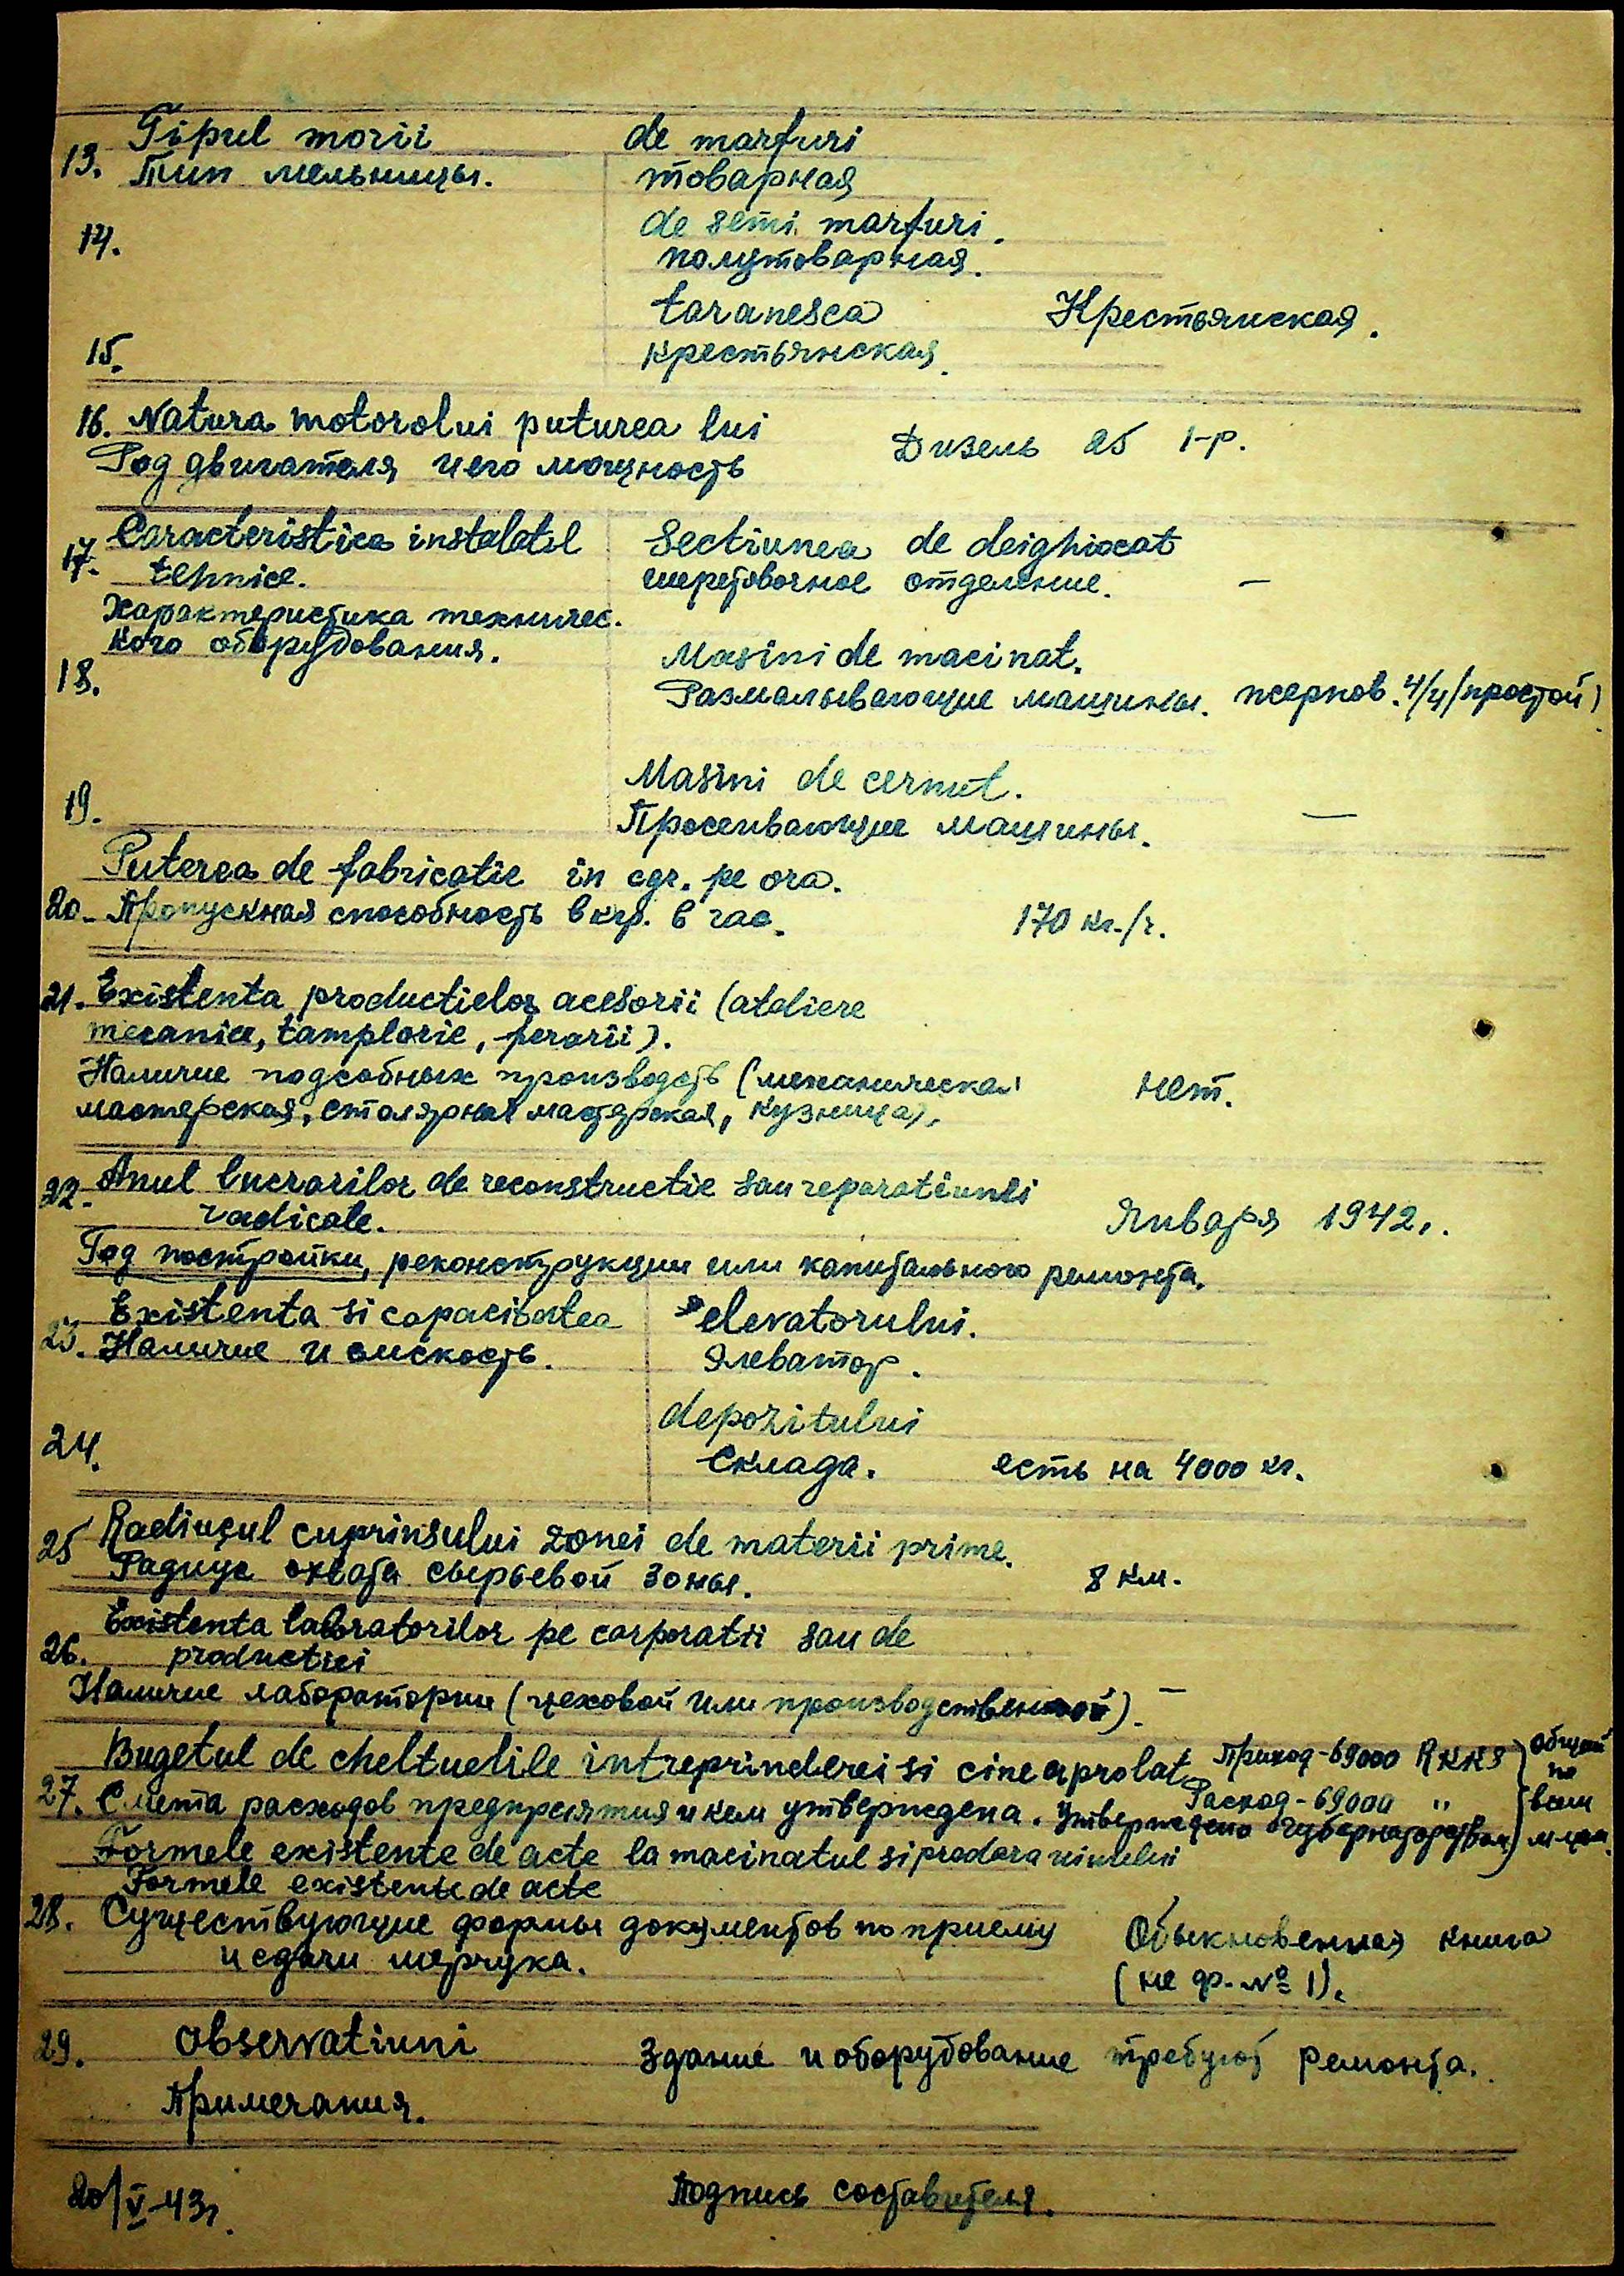 Tipul morii de marfuri
13. Тип мельницы. товарная
de semi marfuri.
14. полутоварная.
taranesca Крестьянская.
15. крестьянская.
16. Natura motorolui puturea lui
Род двигателя и его мощность Дизель 25 1-р.
Caracteristica instalatil Sectiunea de deighiocat
17. tehnice. шеретовочное отделение. —
Характеристика техничес.
кого оборудования. Masini de macinat.
18. Размалывающие машины. жернов. 4/4 (простой)
Masini de cernut.
19. Просеивающие машины. —
Puterea de fabricatie in cgr. pe ora.
20. Пропускная способность в кгр. в час. 170 кг./ч.
21. Existenta productielor acesorii (ateliere
mecanice, tamplorie, ferarii).
Наличие подсобных производств (механическая
мастерская, столярная мастерская, кузница). нет.
22. Anul lucrarilor de reconstructie sau reparatiunii
radicale. Января 1942г.
Год постройки, реконструкции или капитального ремонта.
Existenta si capacitatea elevatorului.
23. Наличие и емкость. Элеватор.
depozitului
24. Склада. есть на 4000 кг.
25 Radiuşul cuprinsului zonei de materii prime.
Радиус охвата сырьевой зоны. 8 км.
Existenta labratorilor pe corporatii sau de
26. productiei
Наличие лаборатории (цеховой или производственной). —
Bugetul de cheltuelile intreprinderei si cine aprolat Приход-69000 RKKS } общий
27. Смета расходов предприятия и кем утверждена. Расход-69000 " по
Утверждено Губернаторством) всем м-цам.
Formele existente de acte la macinatul si prodara
Formele existente de acte
28. Существующие формы документов по приему Обыкновенная книга
и сдачи мерчука. (не ф. № 1).
29. Observatiuni Здание и оборудование требуют ремонта.
Примечания.
20/V-43г. Подпись составителя.